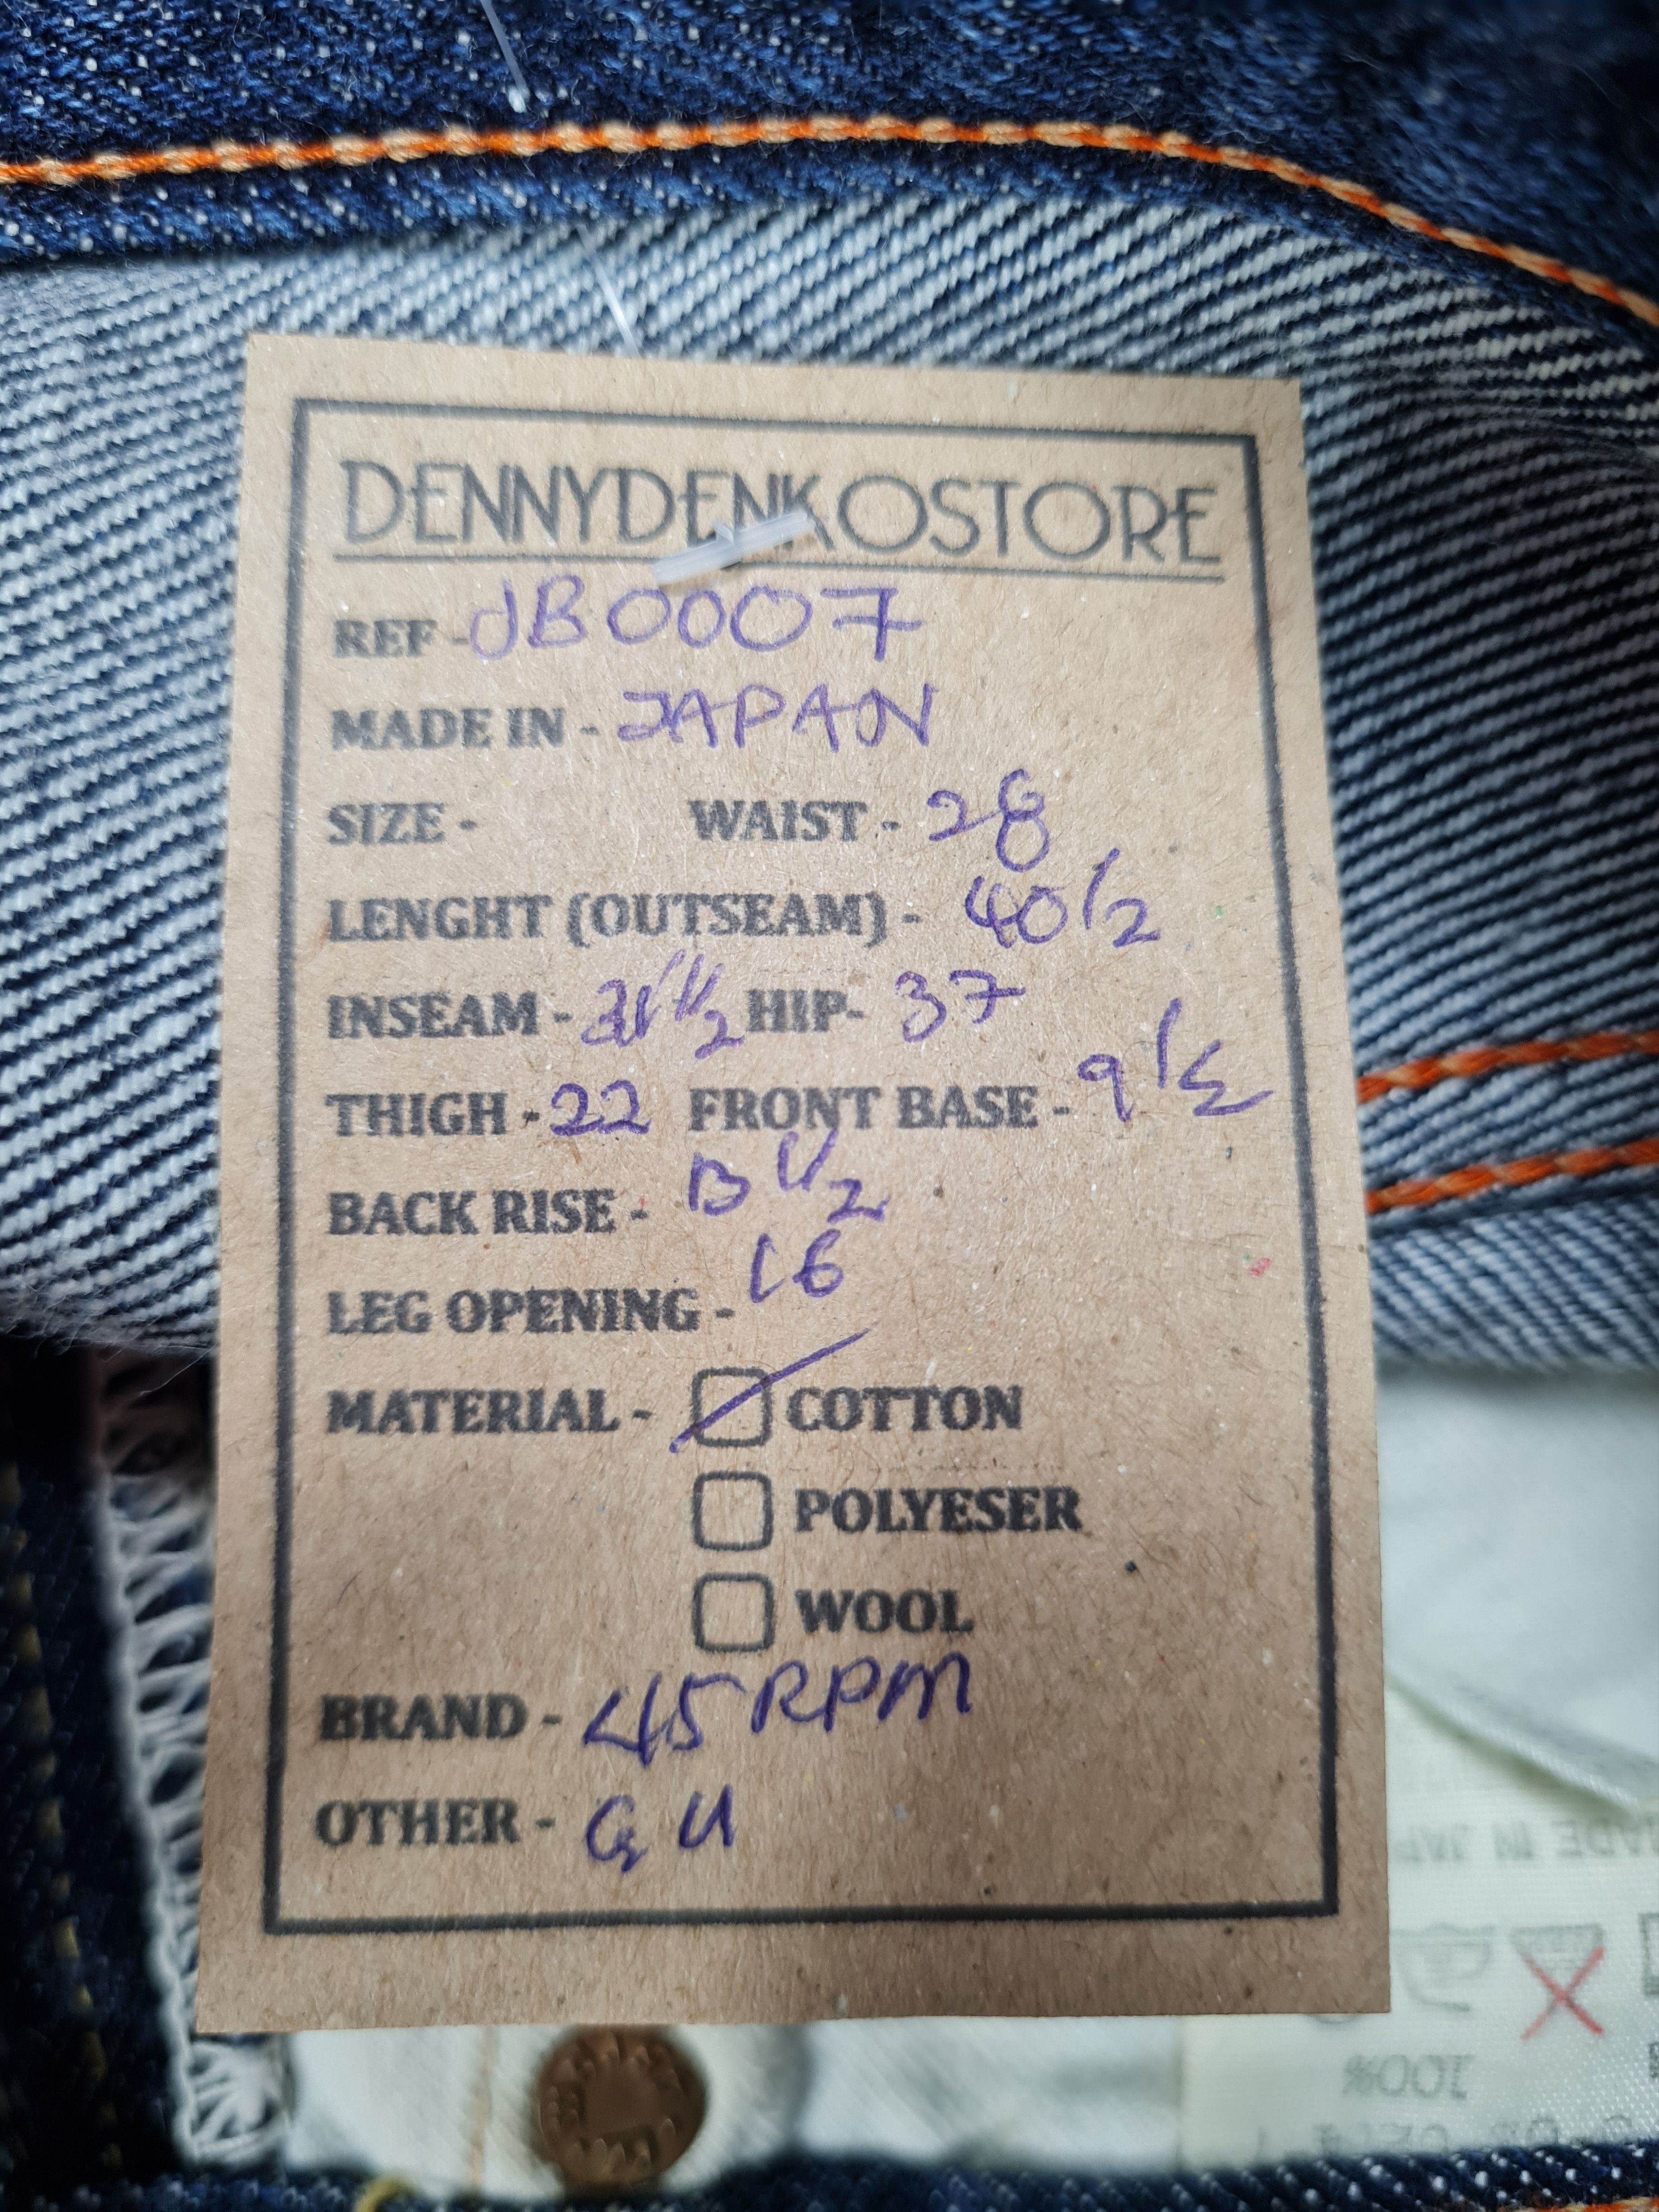 DENNYDENKOSTORE
REF - JB0007
MADE IN - JAPAN
SIZE - WAIST - 28
LENGHT (OUTSEAM) - 40 1/2
INSEAM - 31 1/2 HIP- 37
THIGH - 22 FRONT BASE - 9 1/2
BACK RISE - 13 1/2
LEG OPENING - 16
MATERIAL - COTTON
POLYESER
WOOL
BRAND - 45RPM
OTHER - GU
MADE IN JAP
100%